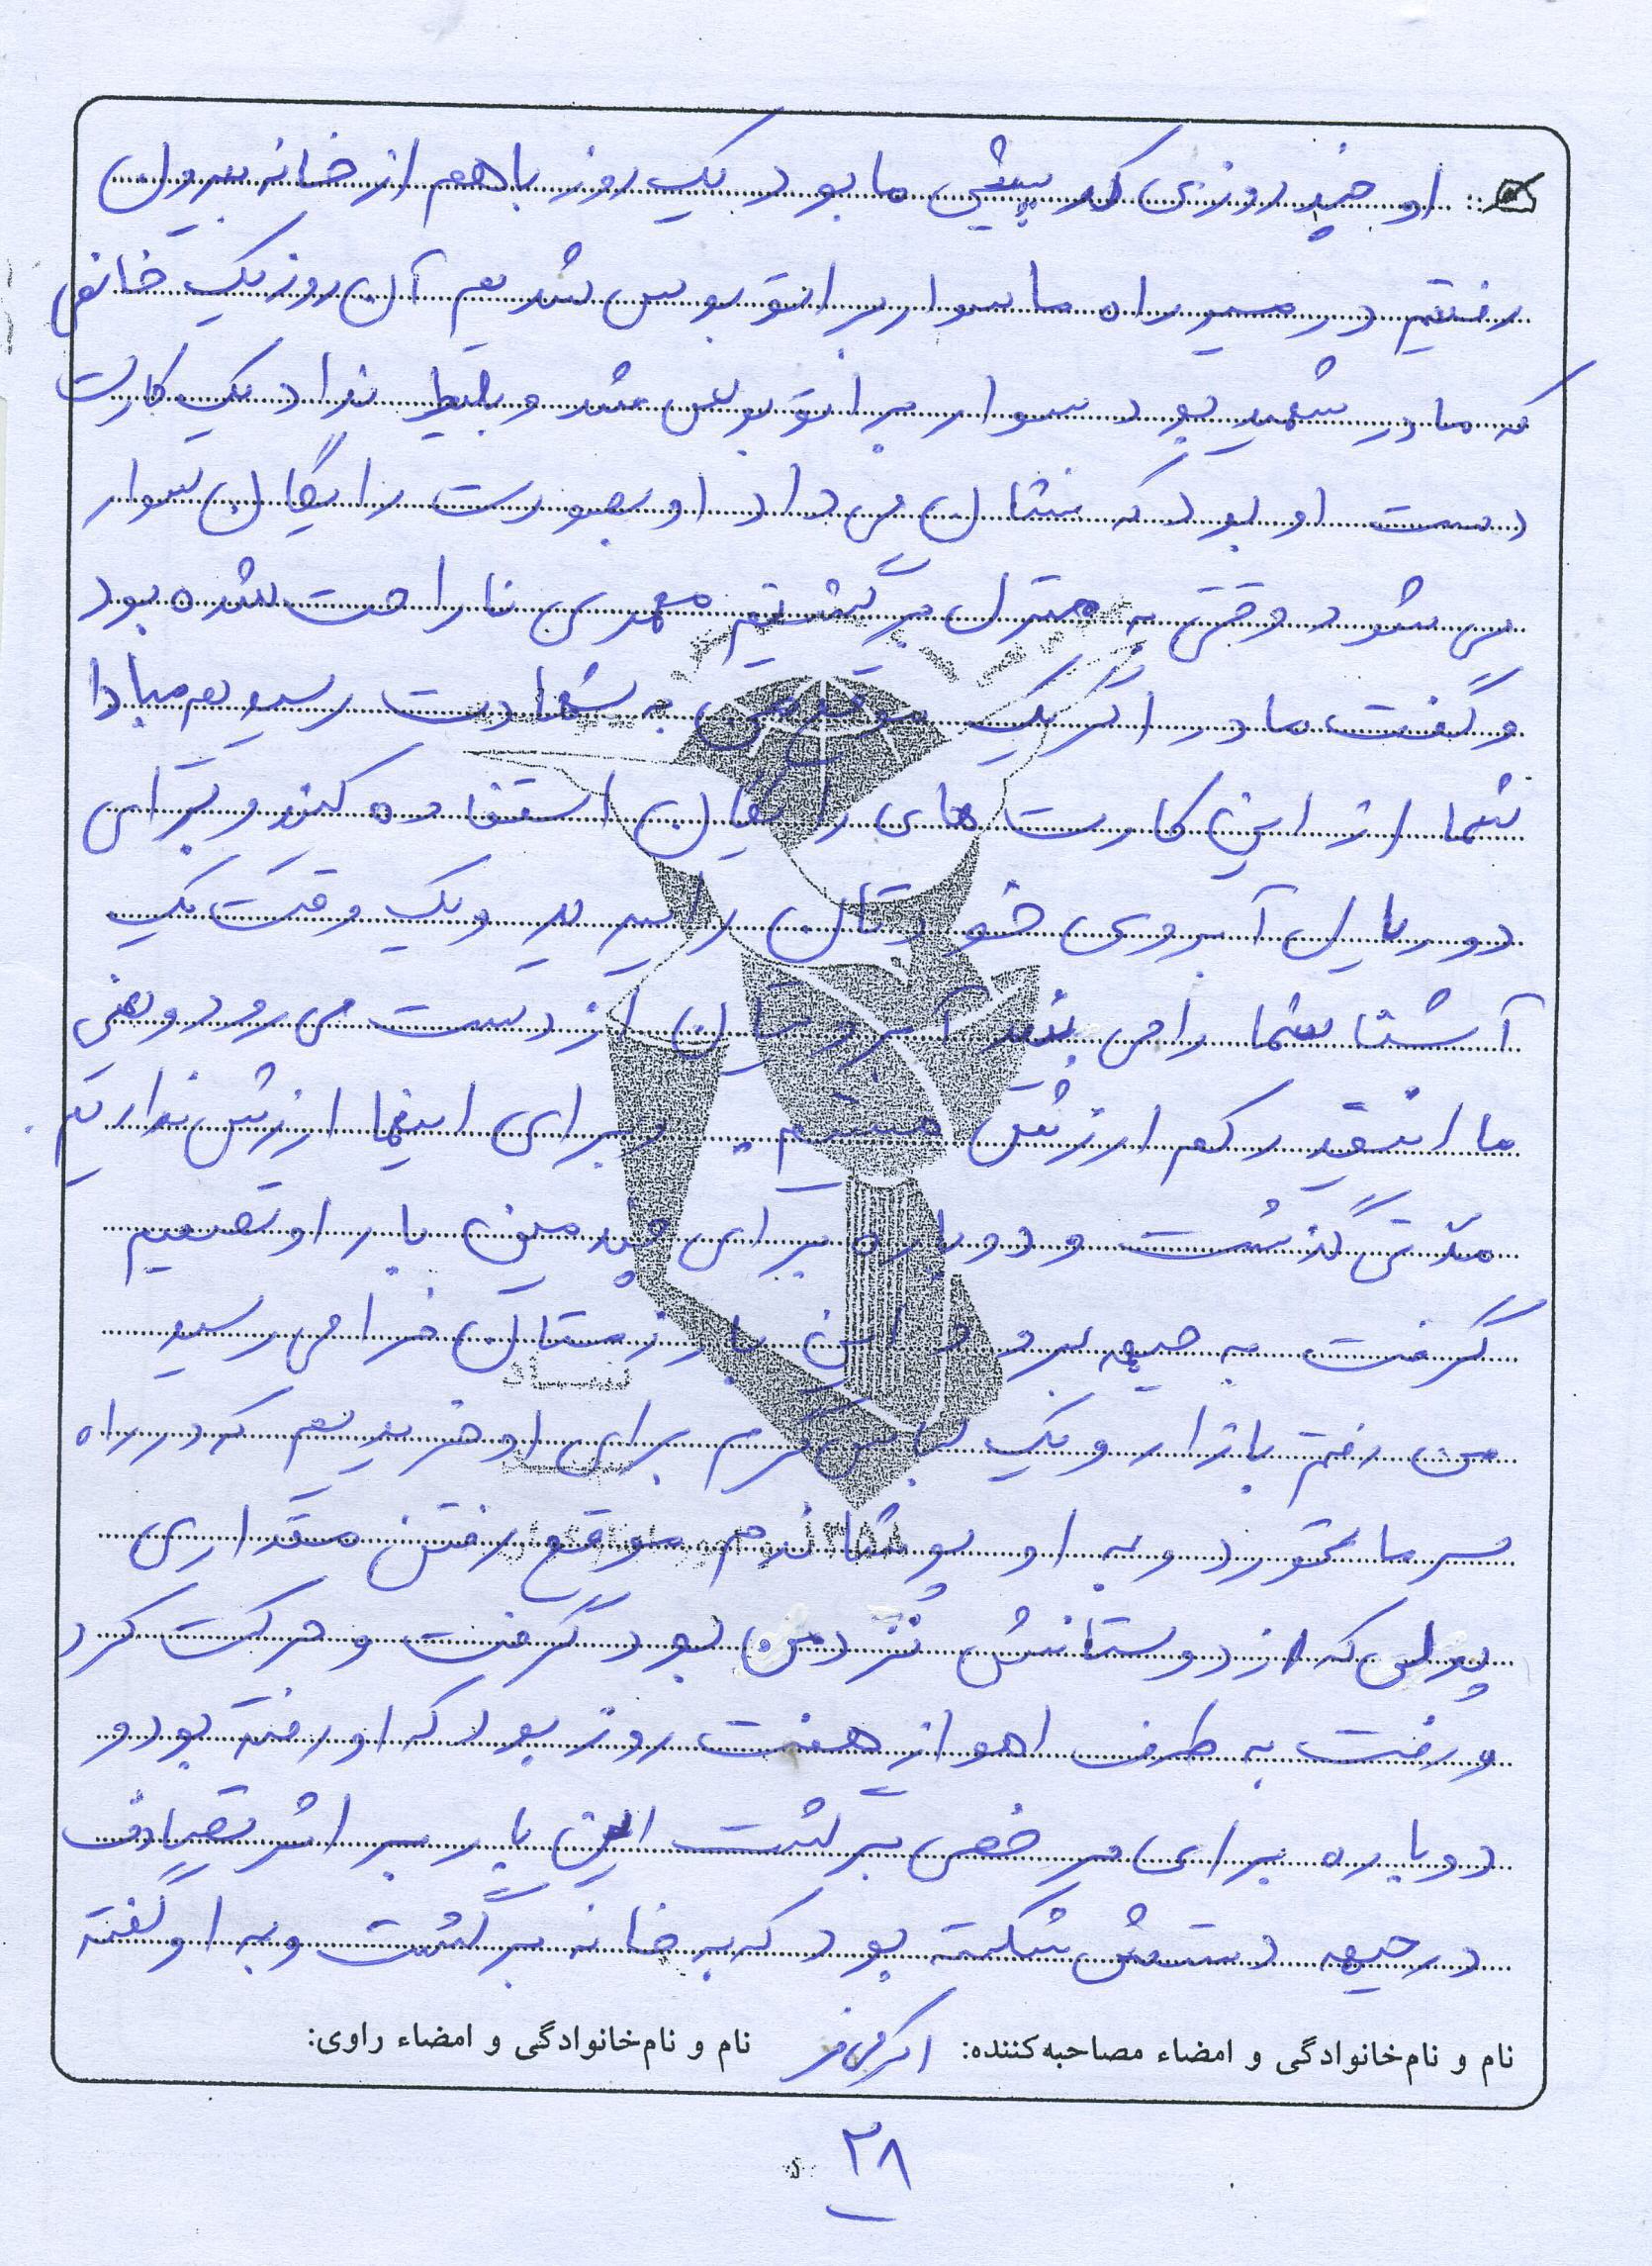 او چند روزی که پیش ما بود یک روز باهم از خانه بیرون
رفتیم در مسیر راه ما سوار بر اتوبوس شدیم آن روز یک خانمی
که مادر شهید بود سوار بر اتوبوس شد و بلیط نداد یک کارت
دست او بود که نشان می داد او بصورت رایگان سوار
می شود وقتی به منزل برگشتیم مهدی ناراحت شده بود
و گفت مادر اگر یک موقع من به شهادت رسیدم مبادا
شما از این کارت های رایگان استفاده کنید و برای
دو ریال آبروی خودتان را ببرید و یک وقت یک
آشنا شما را می بیند آبروتان از دست می رود و یعنی
ما اینقدر کم ارزش هستیم . و برای اینها ارزش نداریم
مدتی گذشت و دوباره برای چندمین بار او تصمیم
گرفت به جبهه برود و این بار زمستان فرا می رسید
من رفتم بازار و یک لباس گرم برای او خریدیم که در راه
سرما نخورد و به او پوشاندم موقع رفتن مقداری
پولی که از دوستانش نزد من بود گرفت و حرکت کرد
و رفت به طرف اهواز هفت روز بود که او رفته بود و
دوباره برای مرخصی برگشت این بار بر اثر تصادف
در جبهه دستش شکسته بود که به خانه برگشت و به او گفته
نام و نام‌خانوادگی و امضاء مصاحبه‌کننده: نام و نام‌خانوادگی و امضاء راوی:
۲۸